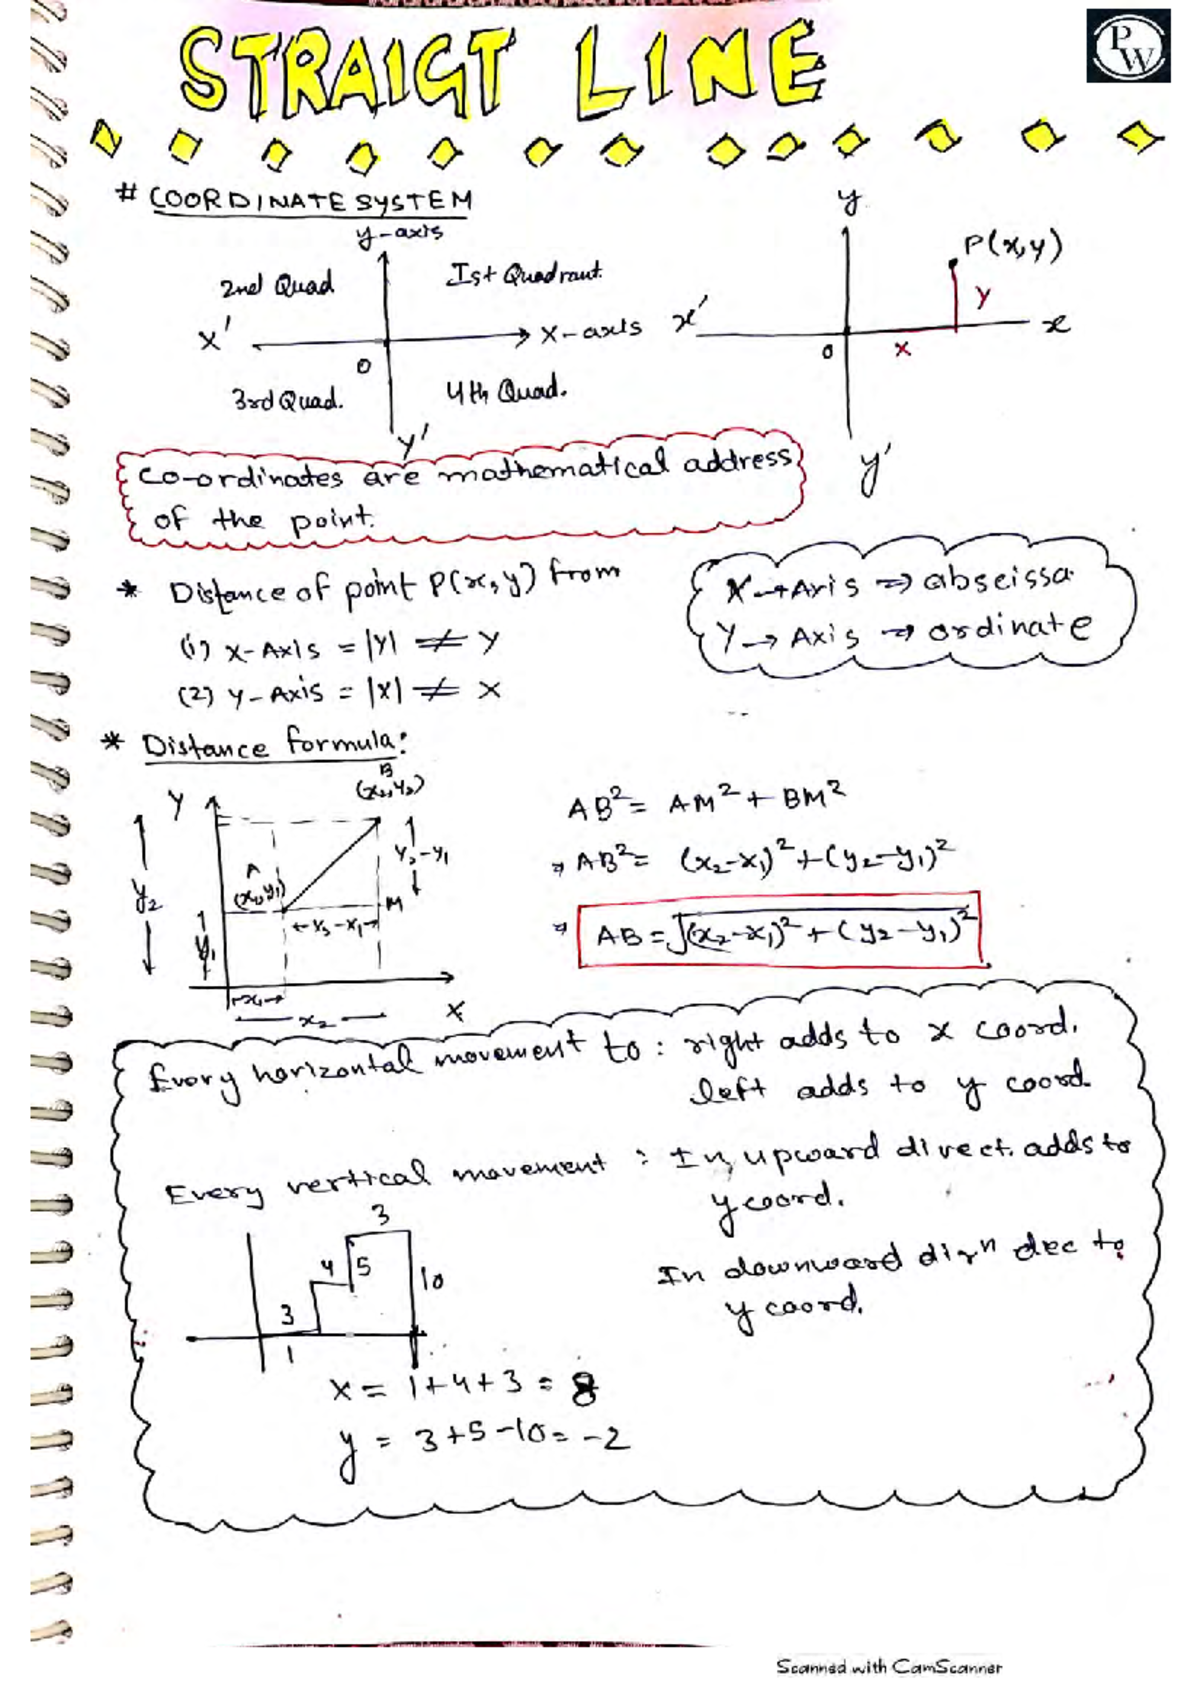 STRAIGT LINE
PW
# COORDINATE SYSTEM
y-axis
2nd Quad
Ist Quadrant
X'
X-axis
O
3rd Quad.
4th Quad.
Y'
y
P(x,y)
y
x'
x
O
x
y'
Co-ordinates are mathematical address
of the point.
* Distance of point P(x,y) from
(1) X-Axis = |Y| ≠ Y
(2) Y-Axis = |X| ≠ X
X → Axis ⇒ abscissa
Y → Axis ⇒ ordinate
* Distance formula:
B
(x₂,y₂)
Y
A
(x₁,y₁)
y₂-y₁
y₂
M
y₁
x₁
x₂
X
AB² = AM² + BM²
⇒ AB² = (x₂-x₁)² + (y₂-y₁)²
⇒ AB = √(x₂-x₁)² + (y₂-y₁)²
Every horizontal movement to : right adds to x coord.
left adds to y coord.
Every vertical movement : In upward direct. adds to
y coord.
In downward dirⁿ dec to
y coord.
3
4
5
10
3
1
x = 1+4+3 = 8
y = 3+5-10 = -2
Scanned with CamScanner